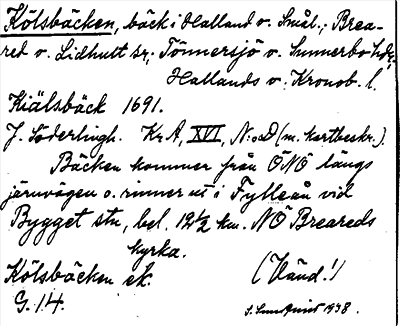 Kölsbäcken, bäck i Halland o. Smål.; Brea-
red o. Lidhult sr; Tönnersjö o. Sunnerbo hdr,
Hallands o. Kronob. l.
Kiälsbäck 1691.
J. Söderlingh. Kr A, XVI, N:o D (m. kartbeskr.).
Bäcken kommer från ÖNÖ längs
järnvägen o. rinner ut i Fylleån vid
Bygget stn, bel. 12½ km. NÖ Breareds
kyrka.
Kölsbäcken ek. (Vänd!)
G. 14. S. Sundquist 1938.